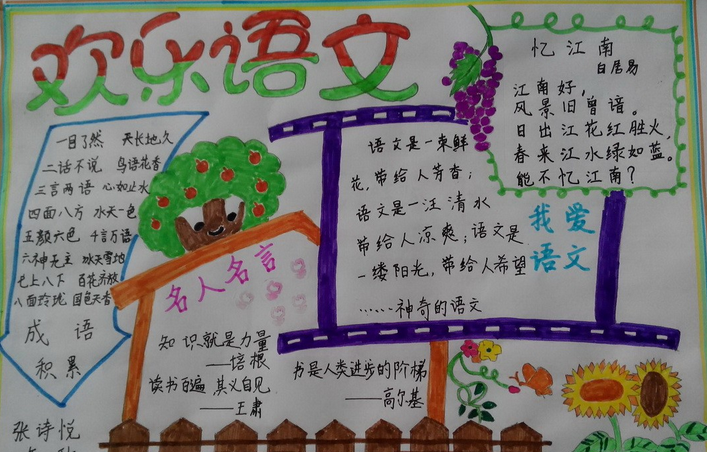 欢乐语文
一目了然 天长地久
二话不说 鸟语花香
三言两语 心如止水
四面八方 水天一色
五颜六色 千言万语
六神无主 冰天雪地
七上八下 百花齐放
八面玲珑 国色天香
成语
积累
张诗悦
名人名言
知识就是力量
——培根
读书百遍 其义自见
——王肃
书是人类进步的阶梯
——高尔基
语文是一束鲜
花,带给人芳香;
语文是一汪清水
带给人凉爽;语文是
一缕阳光,带给人希望
……神奇的语文
我爱
语文
忆江南
白居易
江南好,
风景旧曾谙。
日出江花红胜火,
春来江水绿如蓝。
能不忆江南?